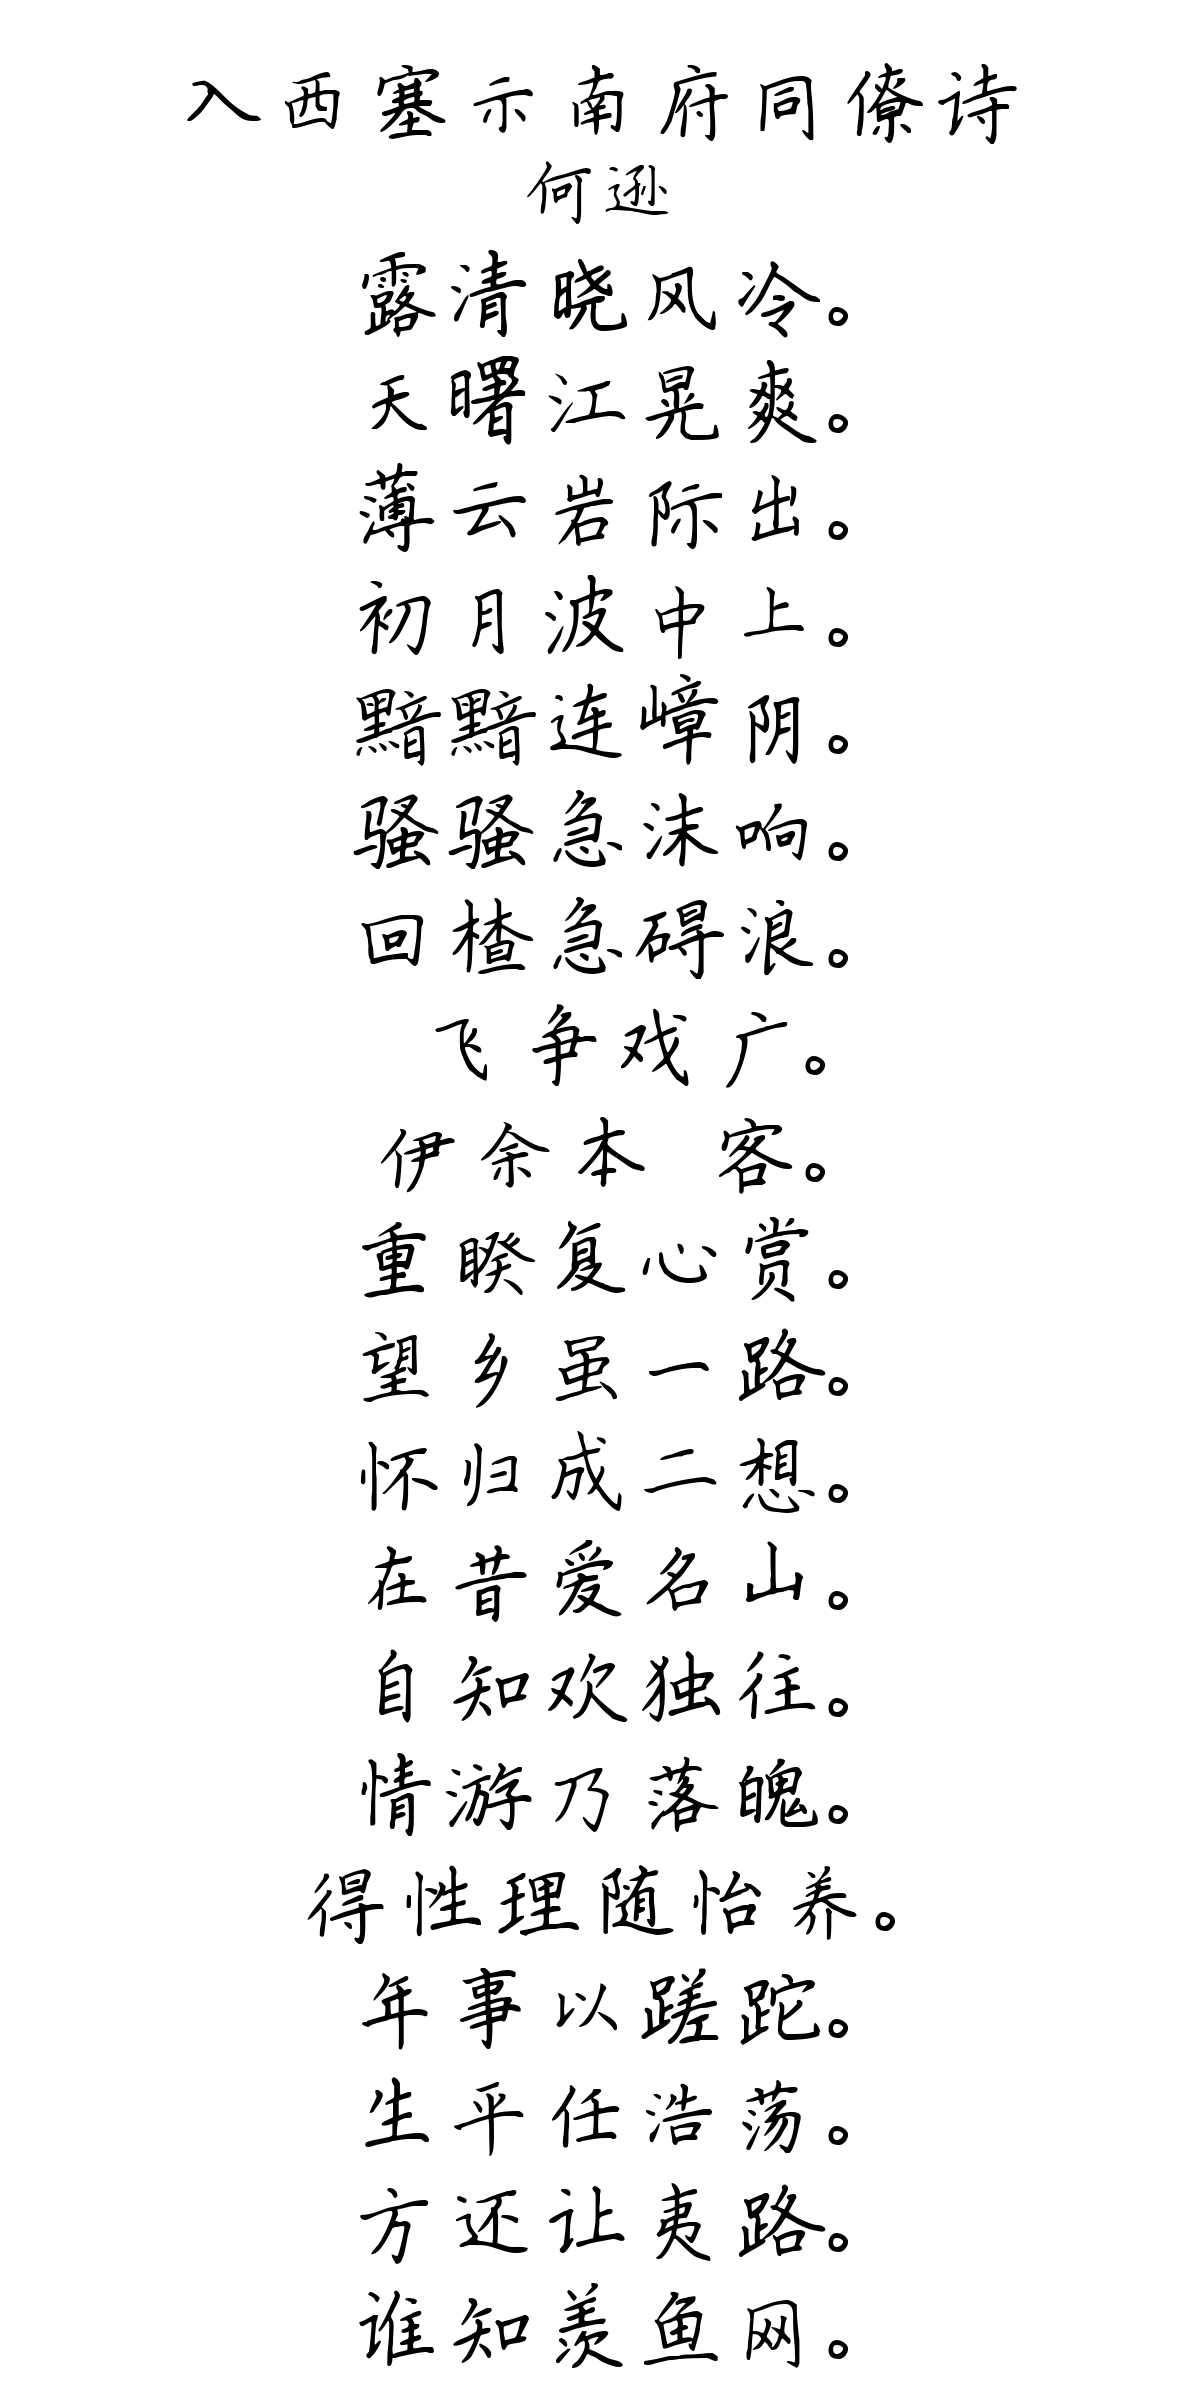 入西塞示南府同僚诗
何逊
露清晓风冷。
天曙江晃爽。
薄云岩际出。
初月波中上。
黯黯连嶂阴。
骚骚急沫响。
回楂急碍浪。
飞争戏广。
伊余本 客。
重睽复心赏。
望乡虽一路。
怀归成二想。
在昔爱名山。
自知欢独往。
情游乃落魄。
得性理随怡养。
年事以蹉跎。
生平任浩荡。
方还让夷路。
谁知羡鱼网。